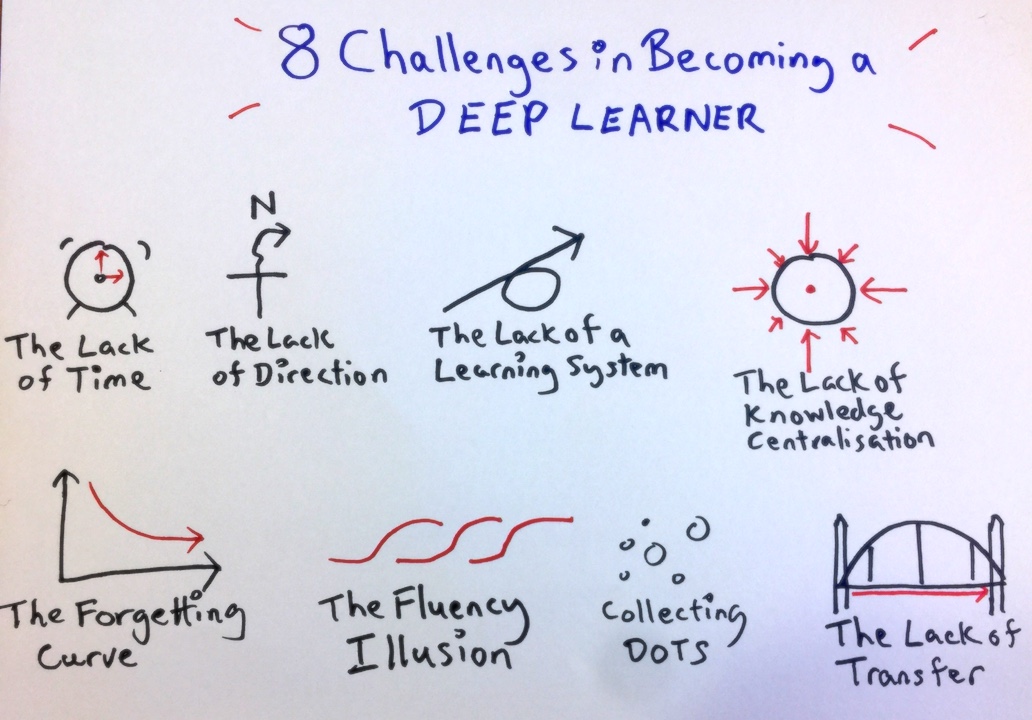 8 Challenges in Becoming a
DEEP LEARNER
N
The Lack
of Time
The Lack
of Direction
The Lack of a
Learning System
The Lack of
Knowledge
Centralisation
The Forgetting
Curve
The Fluency
Illusion
Collecting
DOTS
The Lack of
Transfer